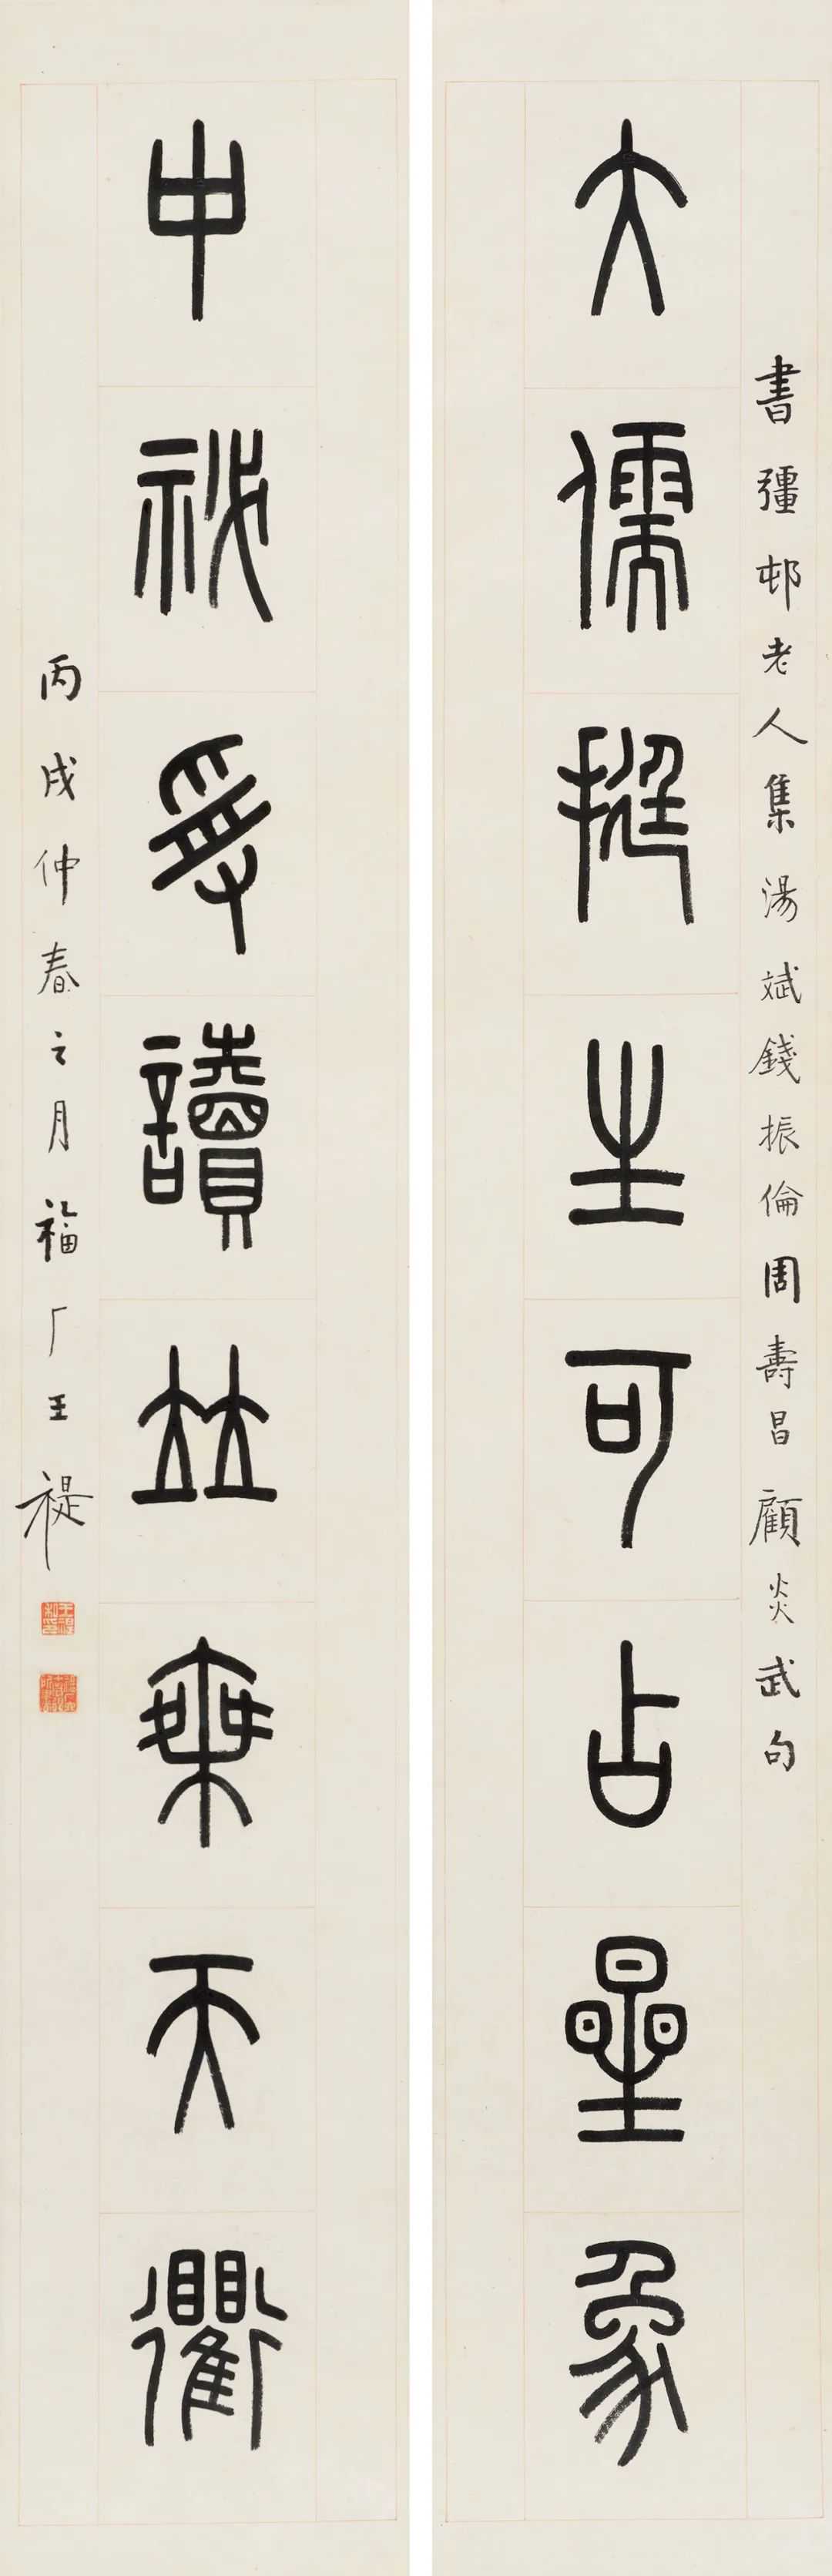 書彊邨老人集湯斌錢振倫周壽昌顧炎武句
大儒挺生可占星象
中祕受讀並乘天衢
丙戌仲春之月福厂王禔